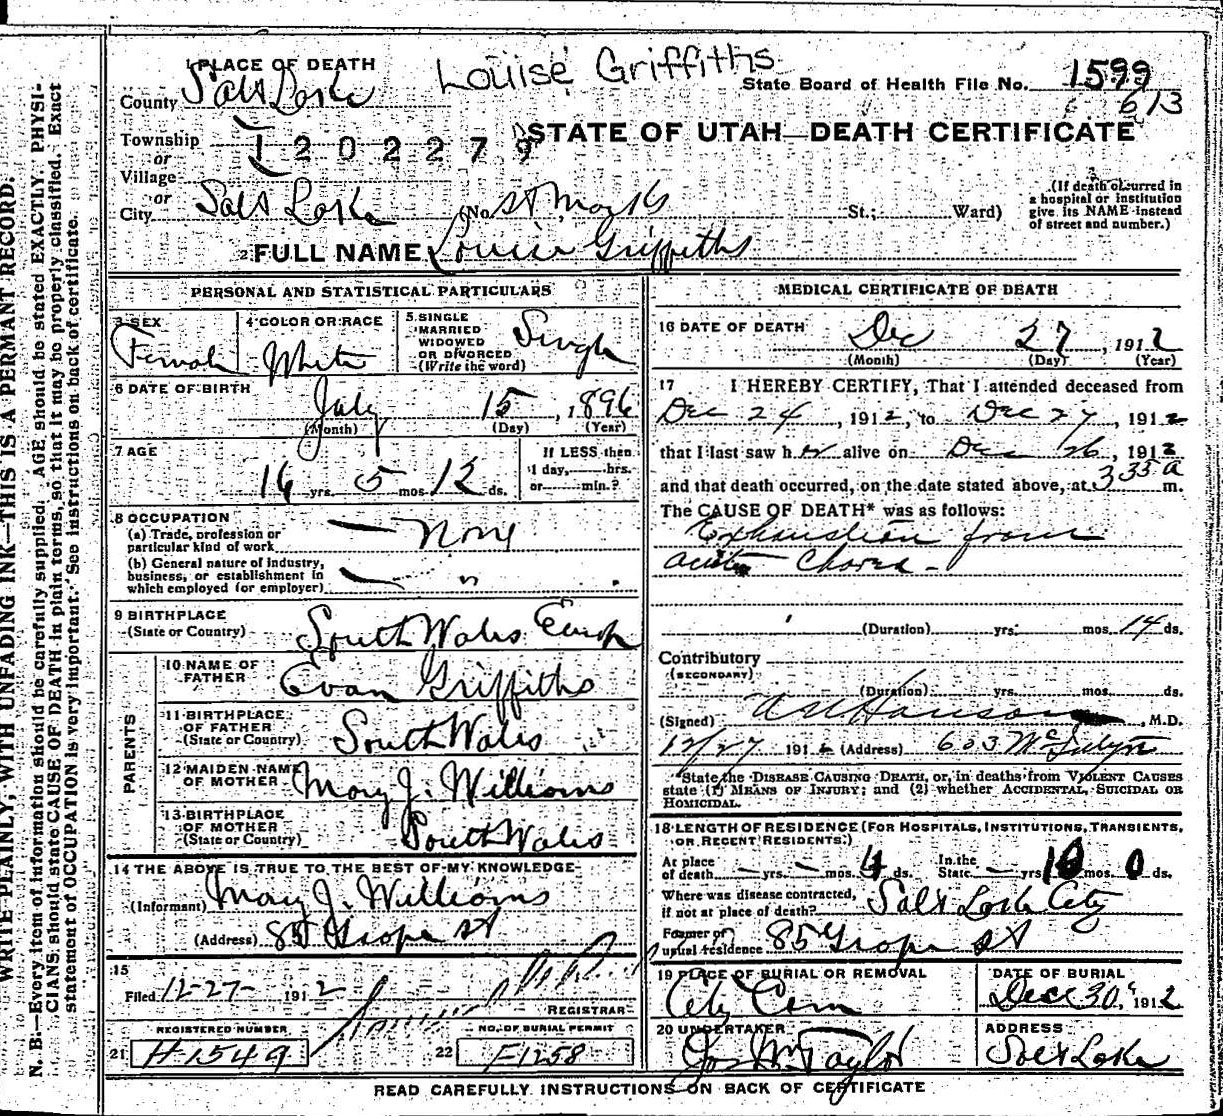 WRITE PLAINLY, WITH UNFADING INK—THIS IS A PERMANT RECORD.
N. B.—Every item of information should be carefully supplied. AGE should be stated EXACTLY. PHYSI-
CIANS should state CAUSE OF DEATH in plain terms, so that it may be properly classified. Exact
statement of OCCUPATION is very important. See instructions on back of certificate.
1 PLACE OF DEATH
Louise Griffiths
State Board of Health File No. 1599
613
County Salt Lake
STATE OF UTAH—DEATH CERTIFICATE
Township
or
Village
1202279
or
City Salt Lake (No. St Marks St.; Ward)
(If death occurred in
a hospital or institution
give its NAME instead
of street and number.)
2 FULL NAME Louise Griffiths
PERSONAL AND STATISTICAL PARTICULARS
3 SEX
Female
4 COLOR OR RACE
White
5 SINGLE
MARRIED
WIDOWED
OR DIVORCED
(Write the word)
Single
6 DATE OF BIRTH
July 15, 1896
(Month) (Day) (Year)
7 AGE
16 yrs. 5 mos. 12 ds.
If LESS then
1 day, hrs.
or min.?
8 OCCUPATION
(a) Trade, profession or
particular kind of work
None
(b) General nature of industry,
business, or establishment in
which employed (or employer)
"
9 BIRTHPLACE
(State or Country)
South Wales Europ
PARENTS
10 NAME OF
FATHER
Evan Griffiths
11 BIRTHPLACE
OF FATHER
(State or Country)
South Wales
12 MAIDEN NAME
OF MOTHER
Mary J. Williams
13 BIRTHPLACE
OF MOTHER
(State or Country)
South Wales
14 THE ABOVE IS TRUE TO THE BEST OF MY KNOWLEDGE
(Informant) Mary J. Williams
(Address) 85 Grape St
15
Filed 12-27- 1912
REGISTRAR
REGISTERED NUMBER
21 H1549
NO. OF BURIAL PERMIT
22 F1258
MEDICAL CERTIFICATE OF DEATH
16 DATE OF DEATH
Dec 27, 1912
(Month) (Day) (Year)
17 I HEREBY CERTIFY, That I attended deceased from
Dec 24, 1912, to Dec 27, 1912
that I last saw h er alive on Dec 26, 1912
and that death occurred, on the date stated above, at 3 35 a m.
The CAUSE OF DEATH* was as follows:
Exhaustion from
acute Chorea-
(Duration) yrs. mos. 14 ds.
Contributory
(SECONDARY)
(Duration) yrs. mos. ds.
(Signed) Hanson, M.D.
12/27 1912 (Address) 603 McIntyre
*State the DISEASE CAUSING DEATH, or, in deaths from VIOLENT CAUSES
state (1) MEANS OF INJURY; and (2) whether ACCIDENTAL, SUICIDAL OR
HOMICIDAL.
18 LENGTH OF RESIDENCE (FOR HOSPITALS, INSTITUTIONS, TRANSIENTS,
OR RECENT RESIDENTS.)
At place
of death — yrs. — mos. 4 ds.
In the
State — yrs. 10 mos. 0 ds.
Where was disease contracted,
if not at place of death? Salt Lake City
Former of
usual residence 85 Grape St
19 PLACE OF BURIAL OR REMOVAL
City Cem
DATE OF BURIAL
Dec 30, 1912
20 UNDERTAKER
Jos Wm Taylor
ADDRESS
Salt Lake
READ CAREFULLY INSTRUCTIONS ON BACK OF CERTIFICATE